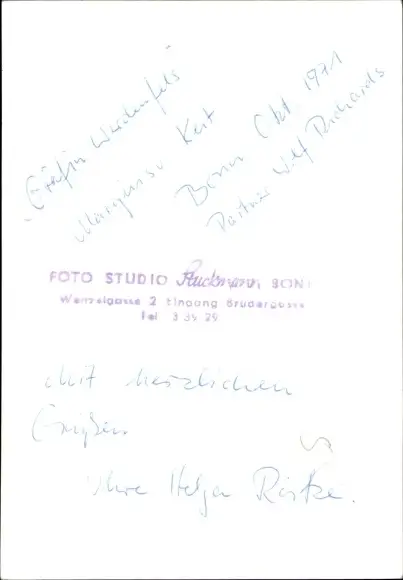 "Gräfin Werdenfels"
Marquise Keith
Bonn Okt. 1971
Partner Wolf Richards
FOTO STUDIO Stuckmann BONN
Wenzelgasse 2 Eingang Brüdergasse
Tel 3 35 29
Mit herzlichen
Grüßen
Ihre Helga